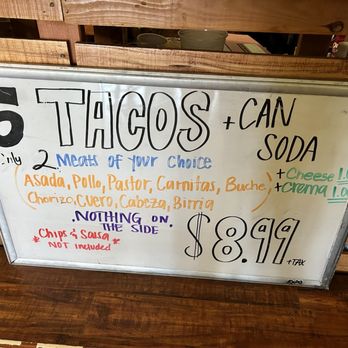 6 TACOS + CAN
SODA
Only 2 Meats of your choice
(Asada, Pollo, Pastor, Carnitas, Buche,
Chorizo, Cuero, Cabeza, Birria)
+ Cheese 1.0
+ Crema 1.00
NOTHING ON
THE SIDE
* Chips & Salsa *
NOT included
$8.99
+TAX